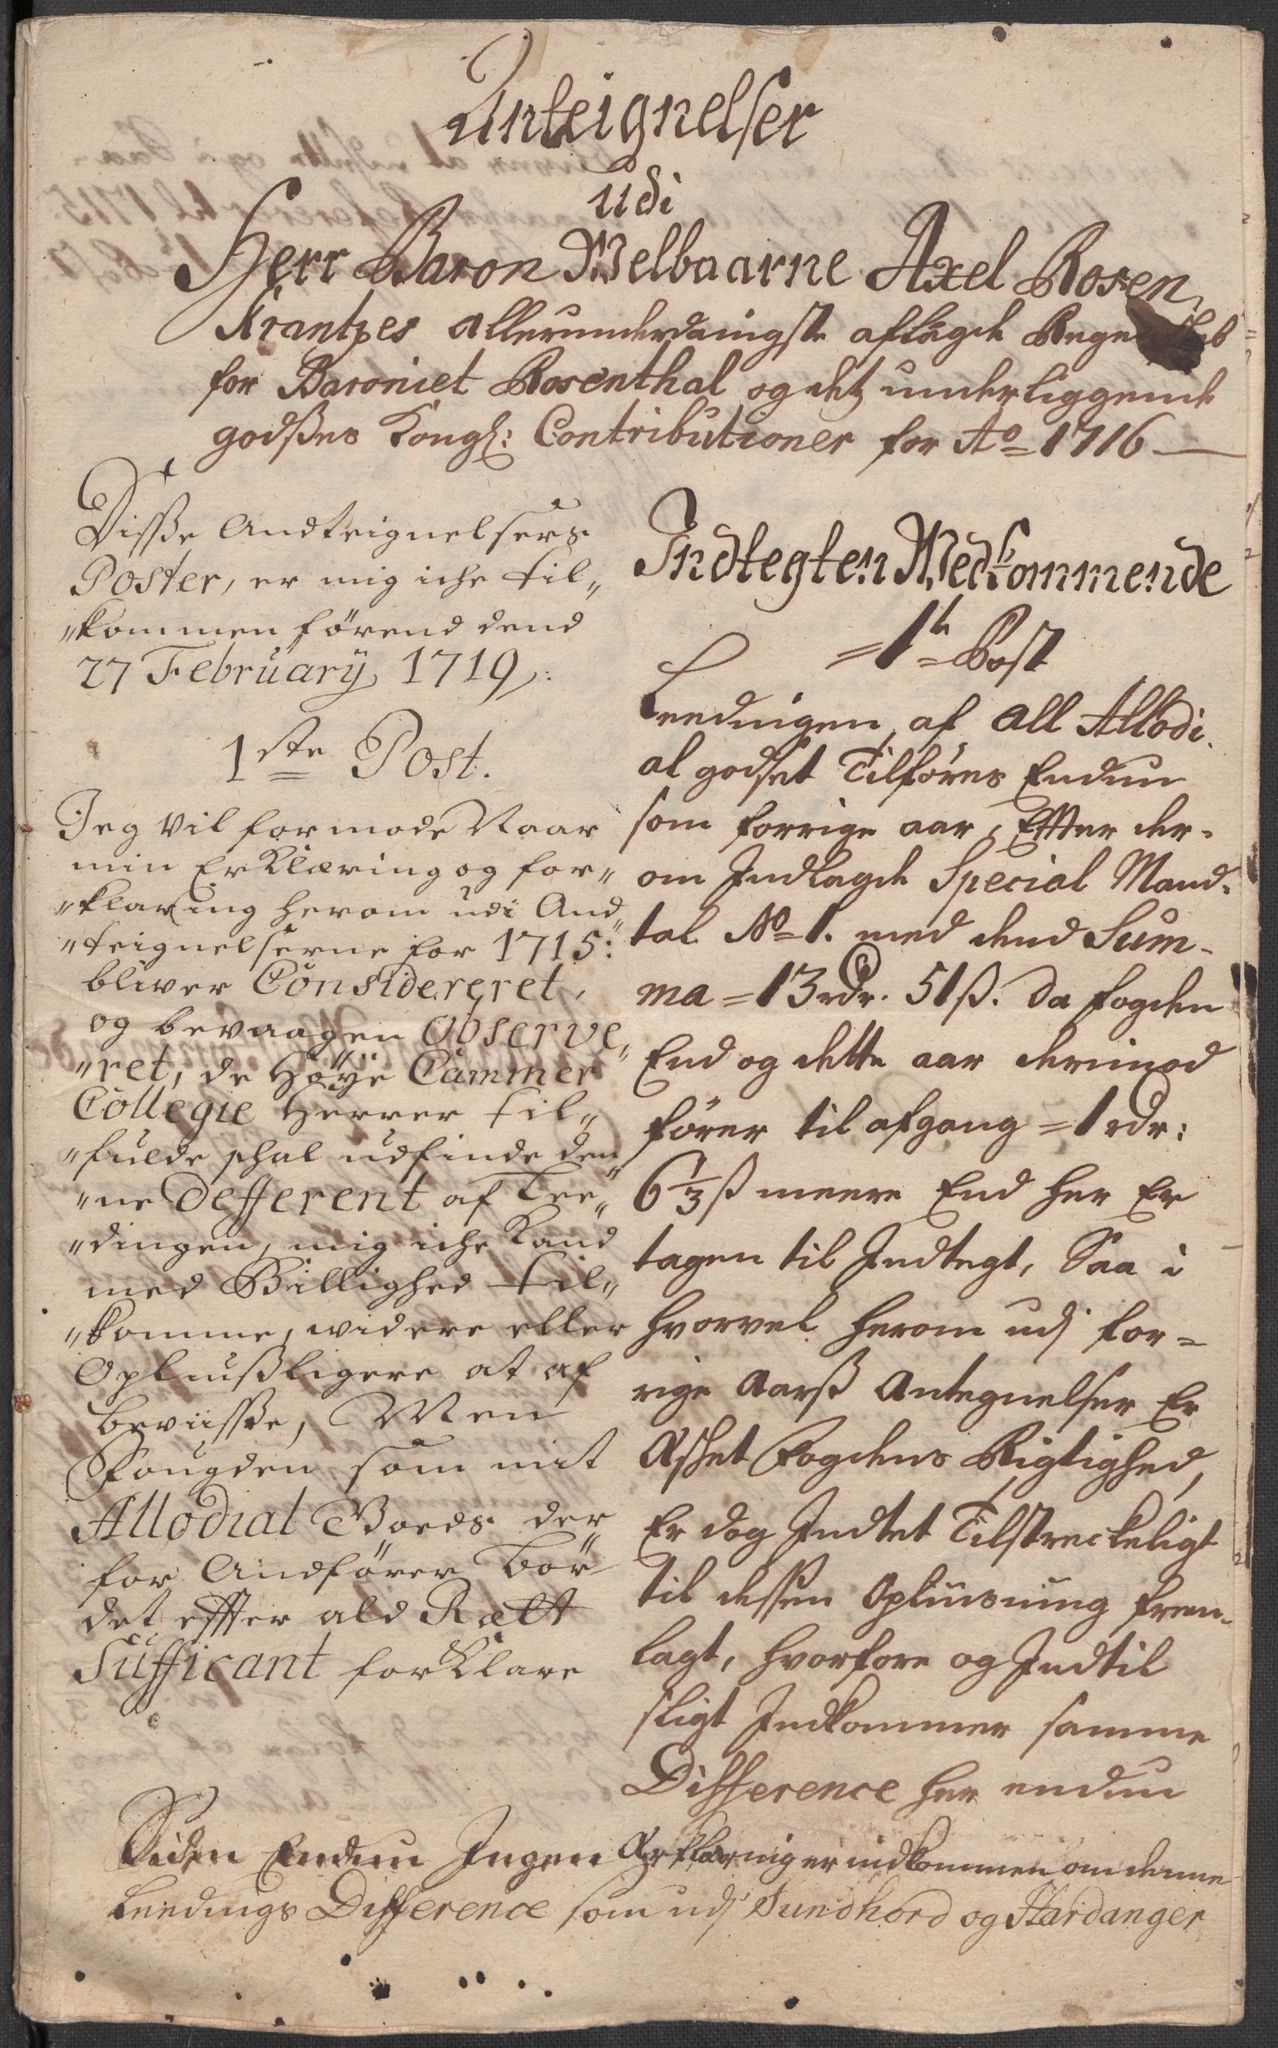 Anteignelser
udi
Herr Baron Welbaarne Axel Rosen
Krantzes allerunderdanigste aflagde
for Baroniet Rosenthal og detz underliggende
godses Kongl: Contributioner for Ao 1716
Disse Andteignelsers
Poster, er mig iche til„
„kommen førend dend
27 February 1719:
1ste Post.
Jeg vil formode Naar
min Erklæring og for„
„klaring herom udi And„
„teignelserne for 1715:
bliver Considereret,
og bevaagen Observe„
„ret, de Høye Cammer
Collegie Herrer til„
„fulde schal udfinde den„
„ne Defferent af Lee„
„dingen, mig iche Kand
med Billighed til„
„komme, widere eller
Opliusligere at af
beviisse, Men
Fougden som mit
Allodial Goeds der
for Andfører Bør
det effter ald Rætt
Sufficant forklare
Indtegten Vedkommende
1te Post
Leedingen af all Allodi
al godset Tilføres Endnu
som forrige aar, Efter der-
om Indlagde Special Mand-
tal No 1. med dend Sum-
ma = 13 rdr. 51 ß. da fogden
End og dette aar derimod
fører til afgang = 1 rdr:
6 1/3 ß meere End her Er
tagen til Indtegt, Saa i
hvorvel herom udj for-
rige Aarß Antegnelser Er
Æsket Fogdens Rigtighed,
Er dog Indtet Tilstreckeligt
til dessen Opliusning frem-
lagt, hvorfore og Indtil
sligt Indkommer samme
Difference her endnu
Siden Endnu Ingen Erklæring er indkommen om denne
Leedings Difference som udj Sundhord og Hardanger